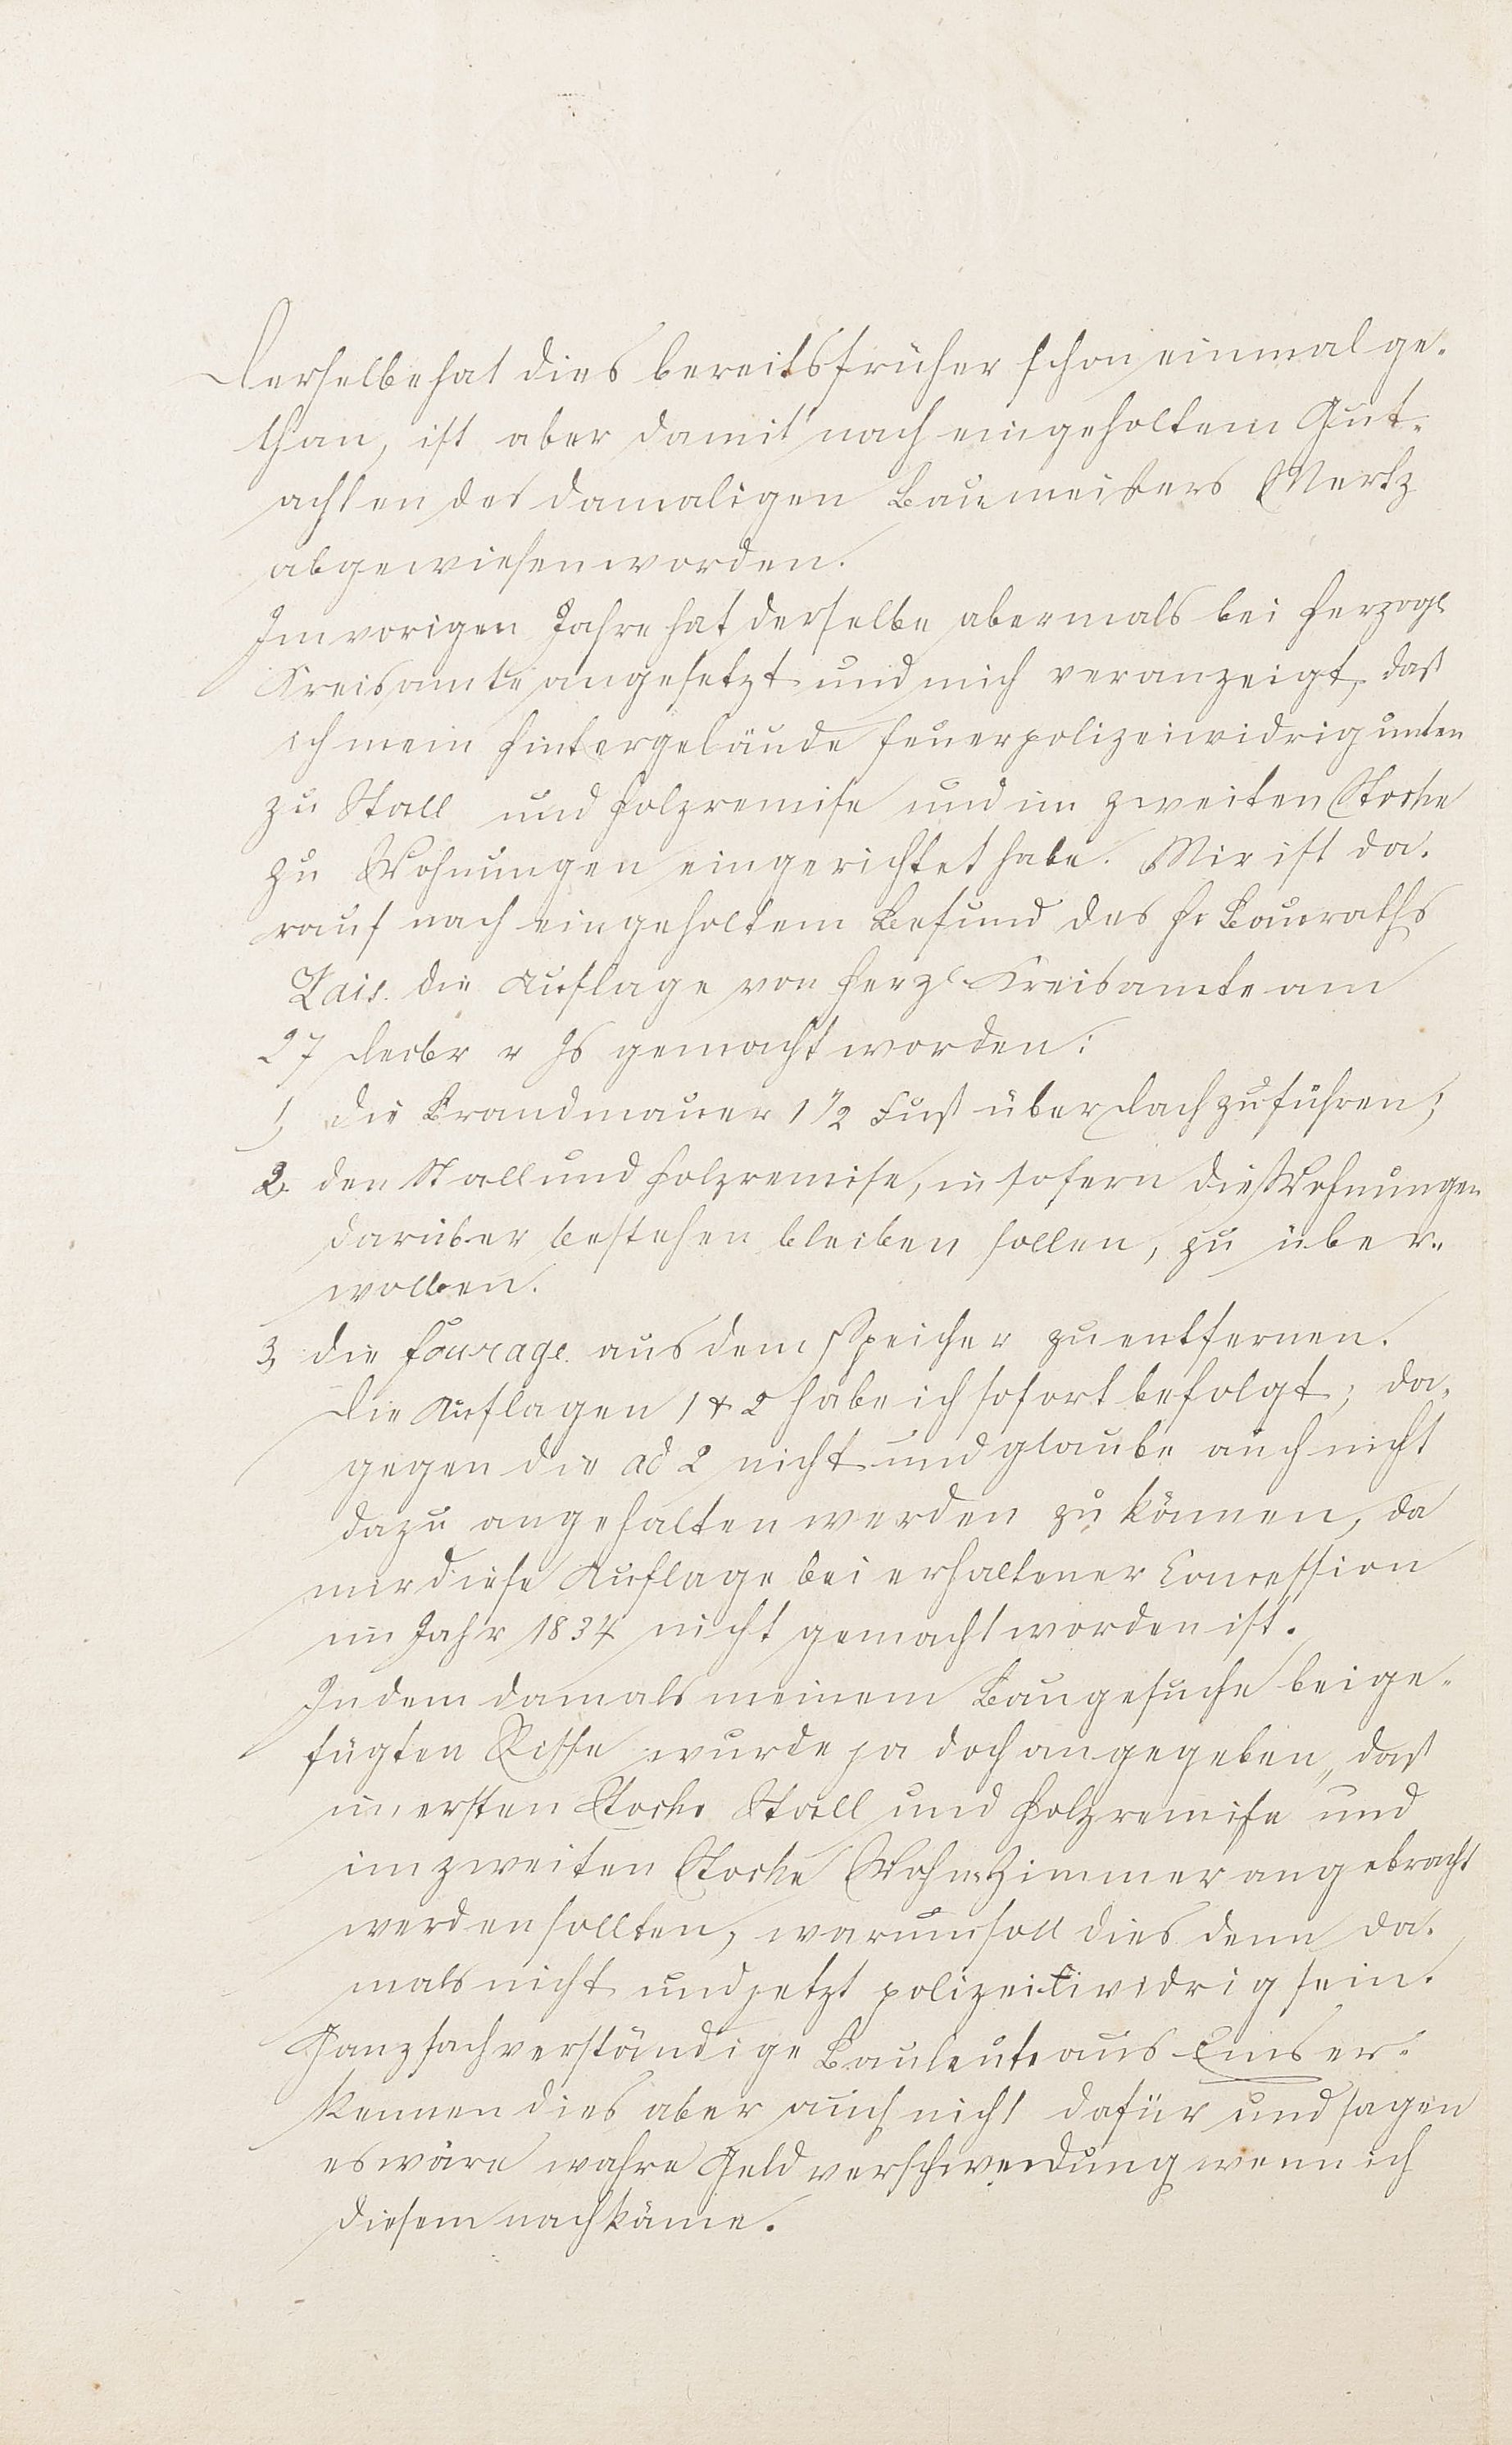 Derselbe hat dies bereits früher schon einmal ge-
than, ist aber damit nach eingeholtem Gut-
achten des damaligen Baumeisters Mertz
abgewiesen worden.
Im vorigen Jahre hat derselbe abermals bei Herzogl
Kreisamte angesetzt und mich veranzeigt, daß
ich mein Hintergebäude feuerpolizeiwidrig unten
zu Stall und Holzremise und im zweiten Stocke
zu Wohnungen eingerichtet habe. Mir ist da-
rauf nach eingeholtem Befund des Hr Bauraths
Lais. die Auflage von Herzl Kreisamte am
27 Decbr v Js gemacht worden:
1, die Brandmauer 1 1/2 Fuß über Dach zu führen;
2. den Stall und Holzremise, in sofern die Wohnungen
darüber bestehen bleiben sollen, zu über-
wölben.
3, die fourage aus dem Speicher zu entfernen.
Die Auflagen 1 & 2 habe ich sofort befolgt; da-
gegen die ad 2 nicht und glaube auch nicht
dazu angehalten werden zu können, da
mir diese Auflage bei erhaltener Concession
im Jahr 1834 nicht gemacht worden ist.
In dem damals meinem Baugesuche beige-
fügten Risse wurde ja doch angegeben, daß
im ersten Stocke Stall und Holzremise und
im zweiten Stocke Wohnzimmer angebracht
werden sollten, warum soll dies denn da-
mals nicht und jetzt polizeiwidrig sein.
Ganz sachverständige Bauleute aus Ems er-
kennen dies aber auch nicht dafür und sagen
es wäre wahre Geldverschwendung wenn ich
diesem nachkäme.